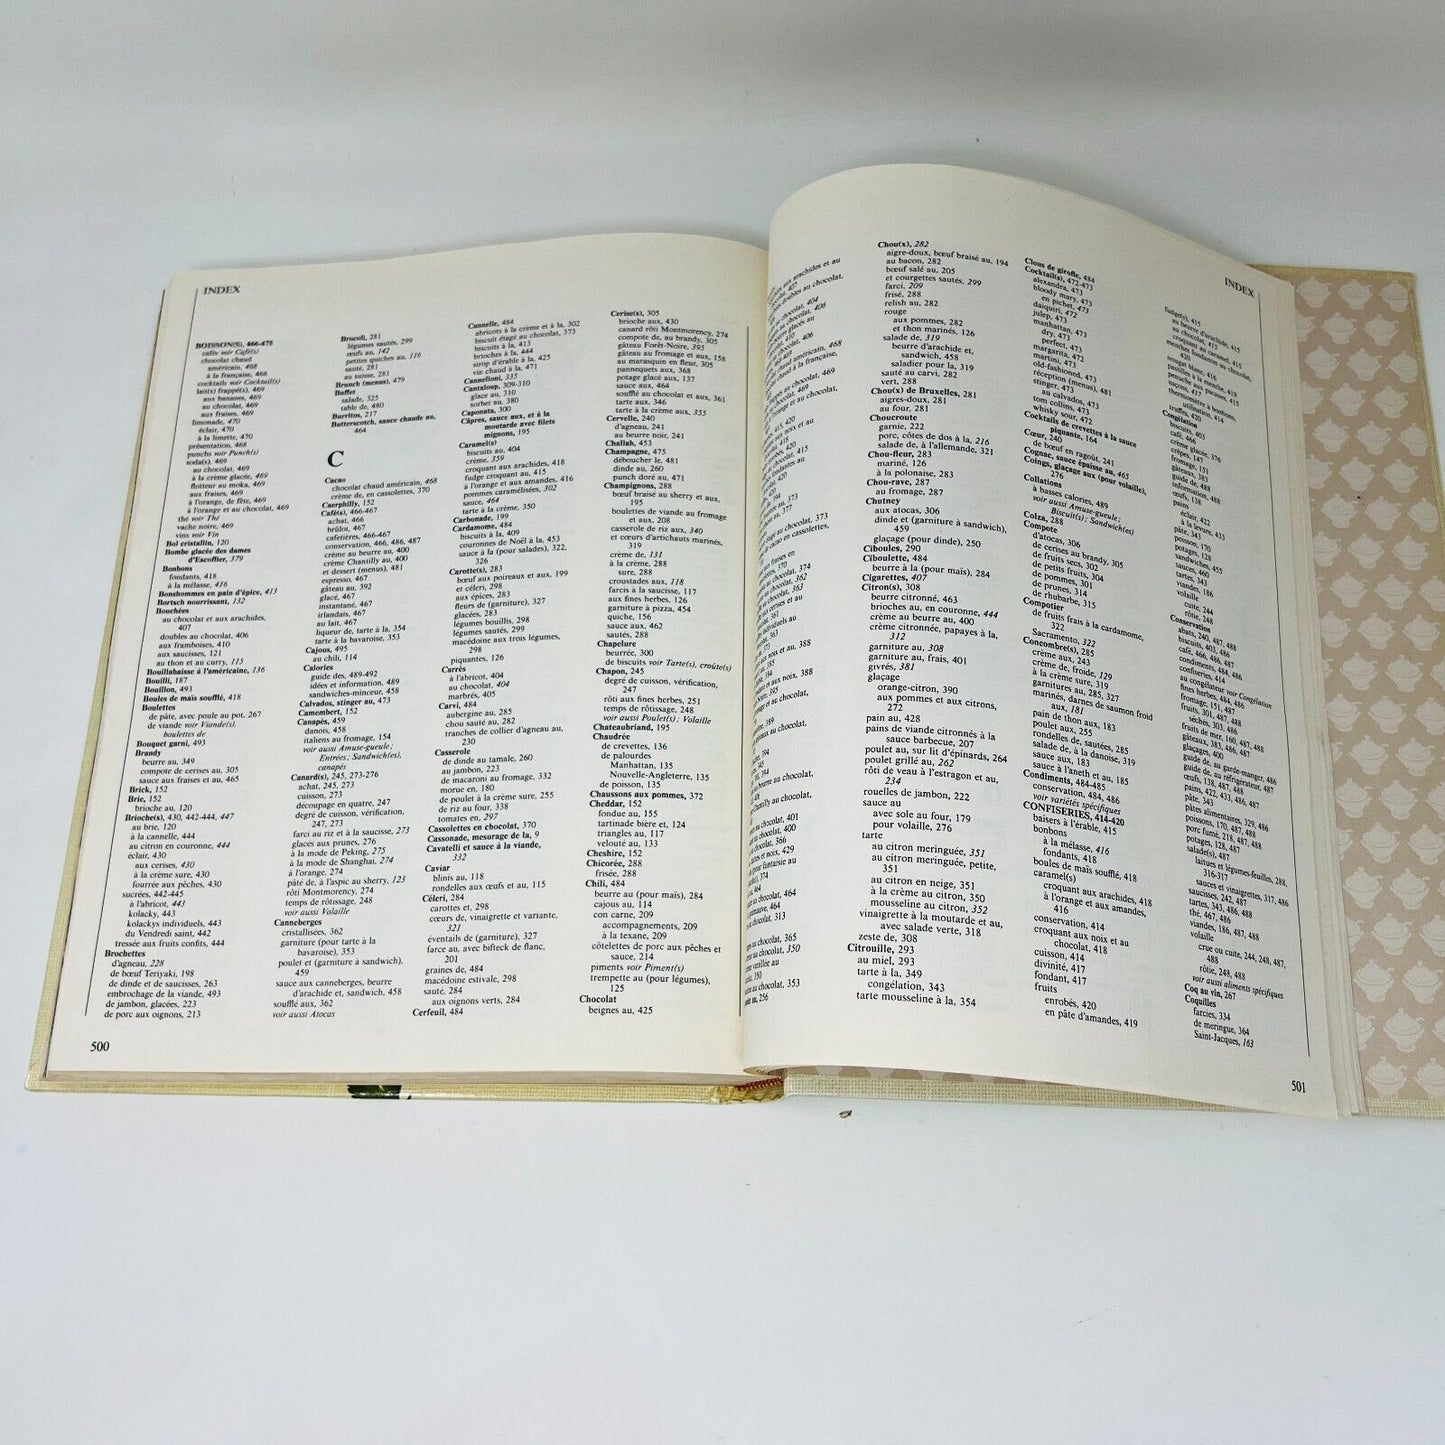 INDEX
BOISSON(S), 466-475
cafés voir Café(s)
chocolat chaud
américain, 468
à la française, 468
cocktails voir Cocktail(s)
lait(s) frappé(s), 469
aux bananes, 469
au chocolat, 469
aux fraises, 469
limonade, 470
éclair, 470
à la limette, 470
présentation, 468
punchs voir Punch(s)
soda(s), 469
au chocolat, 469
à la crème glacée, 469
flotteur au moka, 469
aux fraises, 469
à l'orange, de fête, 469
à l'orange et au chocolat, 469
thé voir Thé
vache noire, 469
vins voir Vin
Bol cristallin, 120
Bombe glacée des dames
d'Escoffier, 379
Bonbons
fondants, 418
à la mélasse, 416
Bonshommes en pain d'épice, 413
Bortsch nourrissant, 132
Bouchées
au chocolat et aux arachides,
407
doubles au chocolat, 406
aux framboises, 410
aux saucisses, 121
au thon et au curry, 115
Bouillabaisse à l'américaine, 136
Bouilli, 187
Bouillon, 493
Boules de maïs soufflé, 418
Boulettes
de pâte, avec poule au pot, 267
de viande voir Viande(s),
boulettes de
Bouquet garni, 493
Brandy
beurre au, 349
compote de cerises au, 305
sauce aux fraises et au, 465
Brick, 152
Brie, 152
brioche au, 120
Brioche(s), 430, 442-444, 447
au brie, 120
à la cannelle, 444
au citron en couronne, 444
éclair, 430
aux cerises, 430
à la crème sure, 430
fourrée aux pêches, 430
sucrées, 442-445
à l'abricot, 443
kolacky, 443
kolackys individuels, 443
du Vendredi saint, 442
tressée aux fruits confits, 444
Brochettes
d'agneau, 228
de bœuf Teriyaki, 198
de dinde et de saucisses, 263
embrochage de la viande, 493
de jambon, glacées, 223
de porc aux oignons, 213
Brocoli, 281
légumes sautés, 299
œufs au, 142
petites quiches au, 116
sauté, 281
au suisse, 281
Brunch (menus), 479
Buffet
salade, 325
table de, 480
Burritos, 217
Butterscotch, sauce chaude au,
464
C
Cacao
chocolat chaud américain, 468
crème de, en cassolettes, 370
Caerphilly, 152
Café(s), 466-467
achat, 466
brûlot, 467
cafetières, 466-467
conservation, 466, 486, 487
crème au beurre au, 400
crème Chantilly au, 401
et dessert (menus), 481
espresso, 467
gâteau au, 392
glacé, 467
instantané, 467
irlandais, 467
au lait, 467
liqueur de, tarte à la, 354
tarte à la bavaroise, 353
Cajous, 495
au chili, 114
Calories
guide des, 489-492
idées et information, 489
sandwiches-minceur, 458
Calvados, stinger au, 473
Camembert, 152
Canapés, 459
danois, 458
italiens au fromage, 154
voir aussi Amuse-gueule;
Entrées; Sandwich(es),
canapés
Canard(s), 245, 273-276
achat, 245, 273
cuisson, 273
découpage en quatre, 247
degré de cuisson, vérification,
247, 273
farci au riz et à la saucisse, 273
glacés aux prunes, 276
à la mode de Peking, 275
à la mode de Shanghai, 274
à l'orange, 274
pâté de, à l'aspic au sherry, 123
rôti Montmorency, 274
temps de rôtissage, 248
voir aussi Volaille
Canneberges
cristallisées, 362
garniture (pour tarte à la
bavaroise), 353
poulet et (garniture à sandwich),
459
sauce aux canneberges, beurre
d'arachide et, sandwich, 458
soufflé aux, 362
voir aussi Atocas
Cannelle, 484
abricots à la crème et à la, 302
biscuit étagé au chocolat, 373
biscuits à la, 413
brioches à la, 444
sirop d'érable à la, 425
vin chaud à la, 471
Cannelloni, 335
Cantaloup, 309-310
glace au, 310
sorbet au, 380
Caponata, 300
Câpres, sauce aux, et à la
moutarde avec filets
mignons, 195
Caramel(s)
biscuits au, 404
crème, 359
croquant aux arachides, 418
fudge croquant au, 415
à l'orange et aux amandes, 416
pommes caramélisées, 302
sauce, 464
tarte à la crème, 350
Carbonade, 199
Cardamome, 484
biscuits à la, 409
couronnes de Noël à la, 453
sauce à la (pour salades), 322,
326
Carotte(s), 283
bœuf aux poireaux et aux, 199
et céleri, 298
aux épices, 283
fleurs de (garniture), 327
glacées, 283
légumes bouillis, 298
légumes sautés, 299
macédoine aux trois légumes,
298
piquantes, 126
Carrés
à l'abricot, 404
au chocolat, 404
marbrés, 405
Carvi, 484
aubergine au, 285
chou sauté au, 282
tranches de collier d'agneau au,
230
Casserole
de dinde au tamale, 260
au jambon, 223
de macaroni au fromage, 332
morue en, 180
de poulet à la crème sure, 255
de riz au four, 338
tomates en, 297
Cassolettes en chocolat, 370
Cassonade, mesurage de la, 9
Cavatelli et sauce à la viande,
332
Caviar
blinis au, 118
rondelles aux œufs et au, 115
Céleri, 284
carottes et, 298
cœurs de, vinaigrette et variante,
321
éventails de (garniture), 327
farce au, avec bifteck de flanc,
201
graines de, 484
macédoine estivale, 298
sauté, 284
aux oignons verts, 284
Cerfeuil, 484
Cerise(s), 305
brioche aux, 430
canard rôti Montmorency, 274
compote de, au brandy, 305
gâteau Forêt-Noire, 395
gâteau au fromage et aux, 158
au marasquin en fleur, 305
pannequets aux, 368
potage glacé aux, 137
sauce aux, 464
soufflé au chocolat et aux, 361
tarte aux, 346
tarte à la crème aux, 355
Cervelle, 240
d'agneau, 241
au beurre noir, 241
Challah, 453
Champagne, 475
déboucher le, 481
dinde au, 260
punch doré au, 471
Champignons, 288
bœuf braisé au sherry et aux,
195
boulettes de viande au fromage
et aux, 208
casserole de riz aux, 340
et cœurs d'artichauts marinés,
319
crème de, 131
à la crème, 288
sure, 288
croustades aux, 118
farcis à la saucisse, 117
aux fines herbes, 126
garniture à pizza, 454
quiche, 156
sauce aux, 462
sautés, 288
Chapelure
beurrée, 300
de biscuits voir Tarte(s), croûte(s)
Chapon, 245
degré de cuisson, vérification,
247
rôti aux fines herbes, 251
temps de rôtissage, 248
voir aussi Poulet(s); Volaille
Chateaubriand, 195
Chaudrée
de crevettes, 136
de palourdes
Manhattan, 135
Nouvelle-Angleterre, 135
de poisson, 135
Chaussons aux pommes, 372
Cheddar, 152
fondue au, 155
tartinade bière et, 124
triangles au, 117
velouté au, 133
Cheshire, 152
Chicorée, 288
frisée, 288
Chili, 484
beurre au (pour maïs), 284
cajous au, 114
con carne, 209
accompagnements, 209
à la texane, 209
côtelettes de porc aux pêches et
sauce, 214
piments voir Piment(s)
trempette au (pour légumes),
125
Chocolat
beignes au, 425
500
Chou(x), 282
aigre-doux, bœuf braisé au, 194
au bacon, 282
bœuf salé au, 205
et courgettes sautés, 299
farci, 209
frisé, 288
relish au, 282
rouge
aux pommes, 282
et thon marinés, 126
salade de, 319
beurre d'arachide et,
sandwich, 458
saladier pour la, 319
sauté au carvi, 282
vert, 288
Chou(x) de Bruxelles, 281
aigres-doux, 281
au four, 281
Choucroute
garnie, 222
porc, côtes de dos à la, 216
salade de, à l'allemande, 321
Chou-fleur, 283
mariné, 126
à la polonaise, 283
Chou-rave, 287
au fromage, 287
Chutney
aux atocas, 306
dinde et (garniture à sandwich),
459
glaçage (pour dinde), 250
Ciboules, 290
Ciboulette, 484
beurre à la (pour maïs), 284
Cigarettes, 407
Citron(s), 308
beurre citronné, 463
brioches au, en couronne, 444
crème au beurre au, 400
crème citronnée, papayes à la,
312
garniture au, 308
garniture au, frais, 401
givrés, 381
glaçage
orange-citron, 390
aux pommes et aux citrons,
272
pain au, 428
pains de viande citronnés à la
sauce barbecue, 207
poulet au, sur lit d'épinards, 264
poulet grillé au, 262
rôti de veau à l'estragon et au,
234
rouelles de jambon, 222
sauce au
avec sole au four, 179
pour volaille, 276
tarte
au citron meringuée, 351
au citron meringuée, petite,
351
au citron en neige, 351
à la crème au citron, 350
mousseline au citron, 352
vinaigrette à la moutarde et au,
avec salade verte, 318
zeste de, 308
Citrouille, 293
au miel, 293
tarte à la, 349
congélation, 343
tarte mousseline à la, 354
Clous de girofle, 484
Cocktail(s), 472-473
alexandra, 473
bloody mary, 473
en pichet, 473
daiquiri, 472
julep, 473
manhattan, 473
dry, 473
perfect, 473
margarita, 472
martini, 473
old-fashioned, 473
réception (menus), 481
stinger, 473
au calvados, 473
tom collins, 473
whisky sour, 472
Cocktails de crevettes à la sauce
piquante, 164
Cœur, 240
de bœuf en ragoût, 241
Cognac, sauce épaisse au, 465
Coings, glaçage aux (pour volaille),
276
Collations
à basses calories, 489
voir aussi Amuse-gueule;
Biscuit(s); Sandwich(es)
Colza, 288
Compote
d'atocas, 306
de cerises au brandy, 305
de fruits secs, 302
de petits fruits, 304
de pommes, 301
de prunes, 314
de rhubarbe, 315
Compotier
de fruits frais à la cardamome,
322
Sacramento, 322
Concombre(s), 285
crème aux, 243
crème de, froide, 129
à la crème sure, 319
garnitures au, 285, 327
marinés, darnes de saumon froid
aux, 181
pain de thon aux, 183
poulet aux, 255
rondelles de, sautées, 285
salade de, à la danoise, 319
sauce aux, 183
sauce à l'aneth et au, 185
Condiments, 484-485
conservation, 484, 486
voir variétés spécifiques
CONFISERIES, 414-420
baisers à l'érable, 415
bonbons
à la mélasse, 416
fondants, 418
boules de maïs soufflé, 418
caramel(s)
croquant aux arachides, 418
à l'orange et aux amandes,
416
conservation, 414
croquant aux noix et au
chocolat, 418
cuisson, 414
divinité, 417
fondant, 417
fruits
enrobés, 420
en pâte d'amandes, 419
INDEX
fudge(s), 415
au beurre d'arachide, 415
au chocolat, 415
croquant au caramel, 415
420
nougat blanc, 416
penuche à la menthe, 419
penuche aux pacanes, 415
sucons, 417
thermomètre à bonbons,
utilisation, 414
truffins, 420
Congélation
biscuits, 403
café, 466
crème glacée, 376
crêpes, 147
fromage, 151
gâteaux, 383
guide de, 488
information, 488
œufs, 138
pains
éclair, 422
à la levure, 433
pâté, 343
poisson, 170
potages, 128
sandwiches, 455
sauces, 460
tartes, 343
viandes, 186
volaille
cuite, 244
rôtie, 248
Conservation
abats, 240, 487, 488
biscuits, 403, 486
café, 466, 486, 487
condiments, 484, 486
confiseries, 414
au congélateur voir Congélation
fines herbes, 484, 486
fromage, 151, 487
fruits, 301, 487, 488
séchés, 303, 486
fruits de mer, 160, 487, 488
gâteaux, 383, 486, 487
glaçages, 400
guide de, au garde-manger, 486
guide de, au réfrigérateur, 487
œufs, 138, 487, 488
pains, 422, 433, 486, 487
pâté, 343
pâtes alimentaires, 329, 486
poissons, 170, 487, 488
porc fumé, 218, 487
potages, 128, 487
salade(s), 487
laitues et légumes-feuilles, 288,
316-317
sauces et vinaigrettes, 317, 486
saucisses, 242, 487
tartes, 343, 486, 488
thé, 467, 486
viandes, 186, 487, 488
volaille
crue ou cuite, 244, 248, 487,
488
rôtie, 248, 488
voir aussi aliments spécifiques
Coq au vin, 267
Coquilles
farcies, 334
de meringue, 364
Saint-Jacques, 163
501